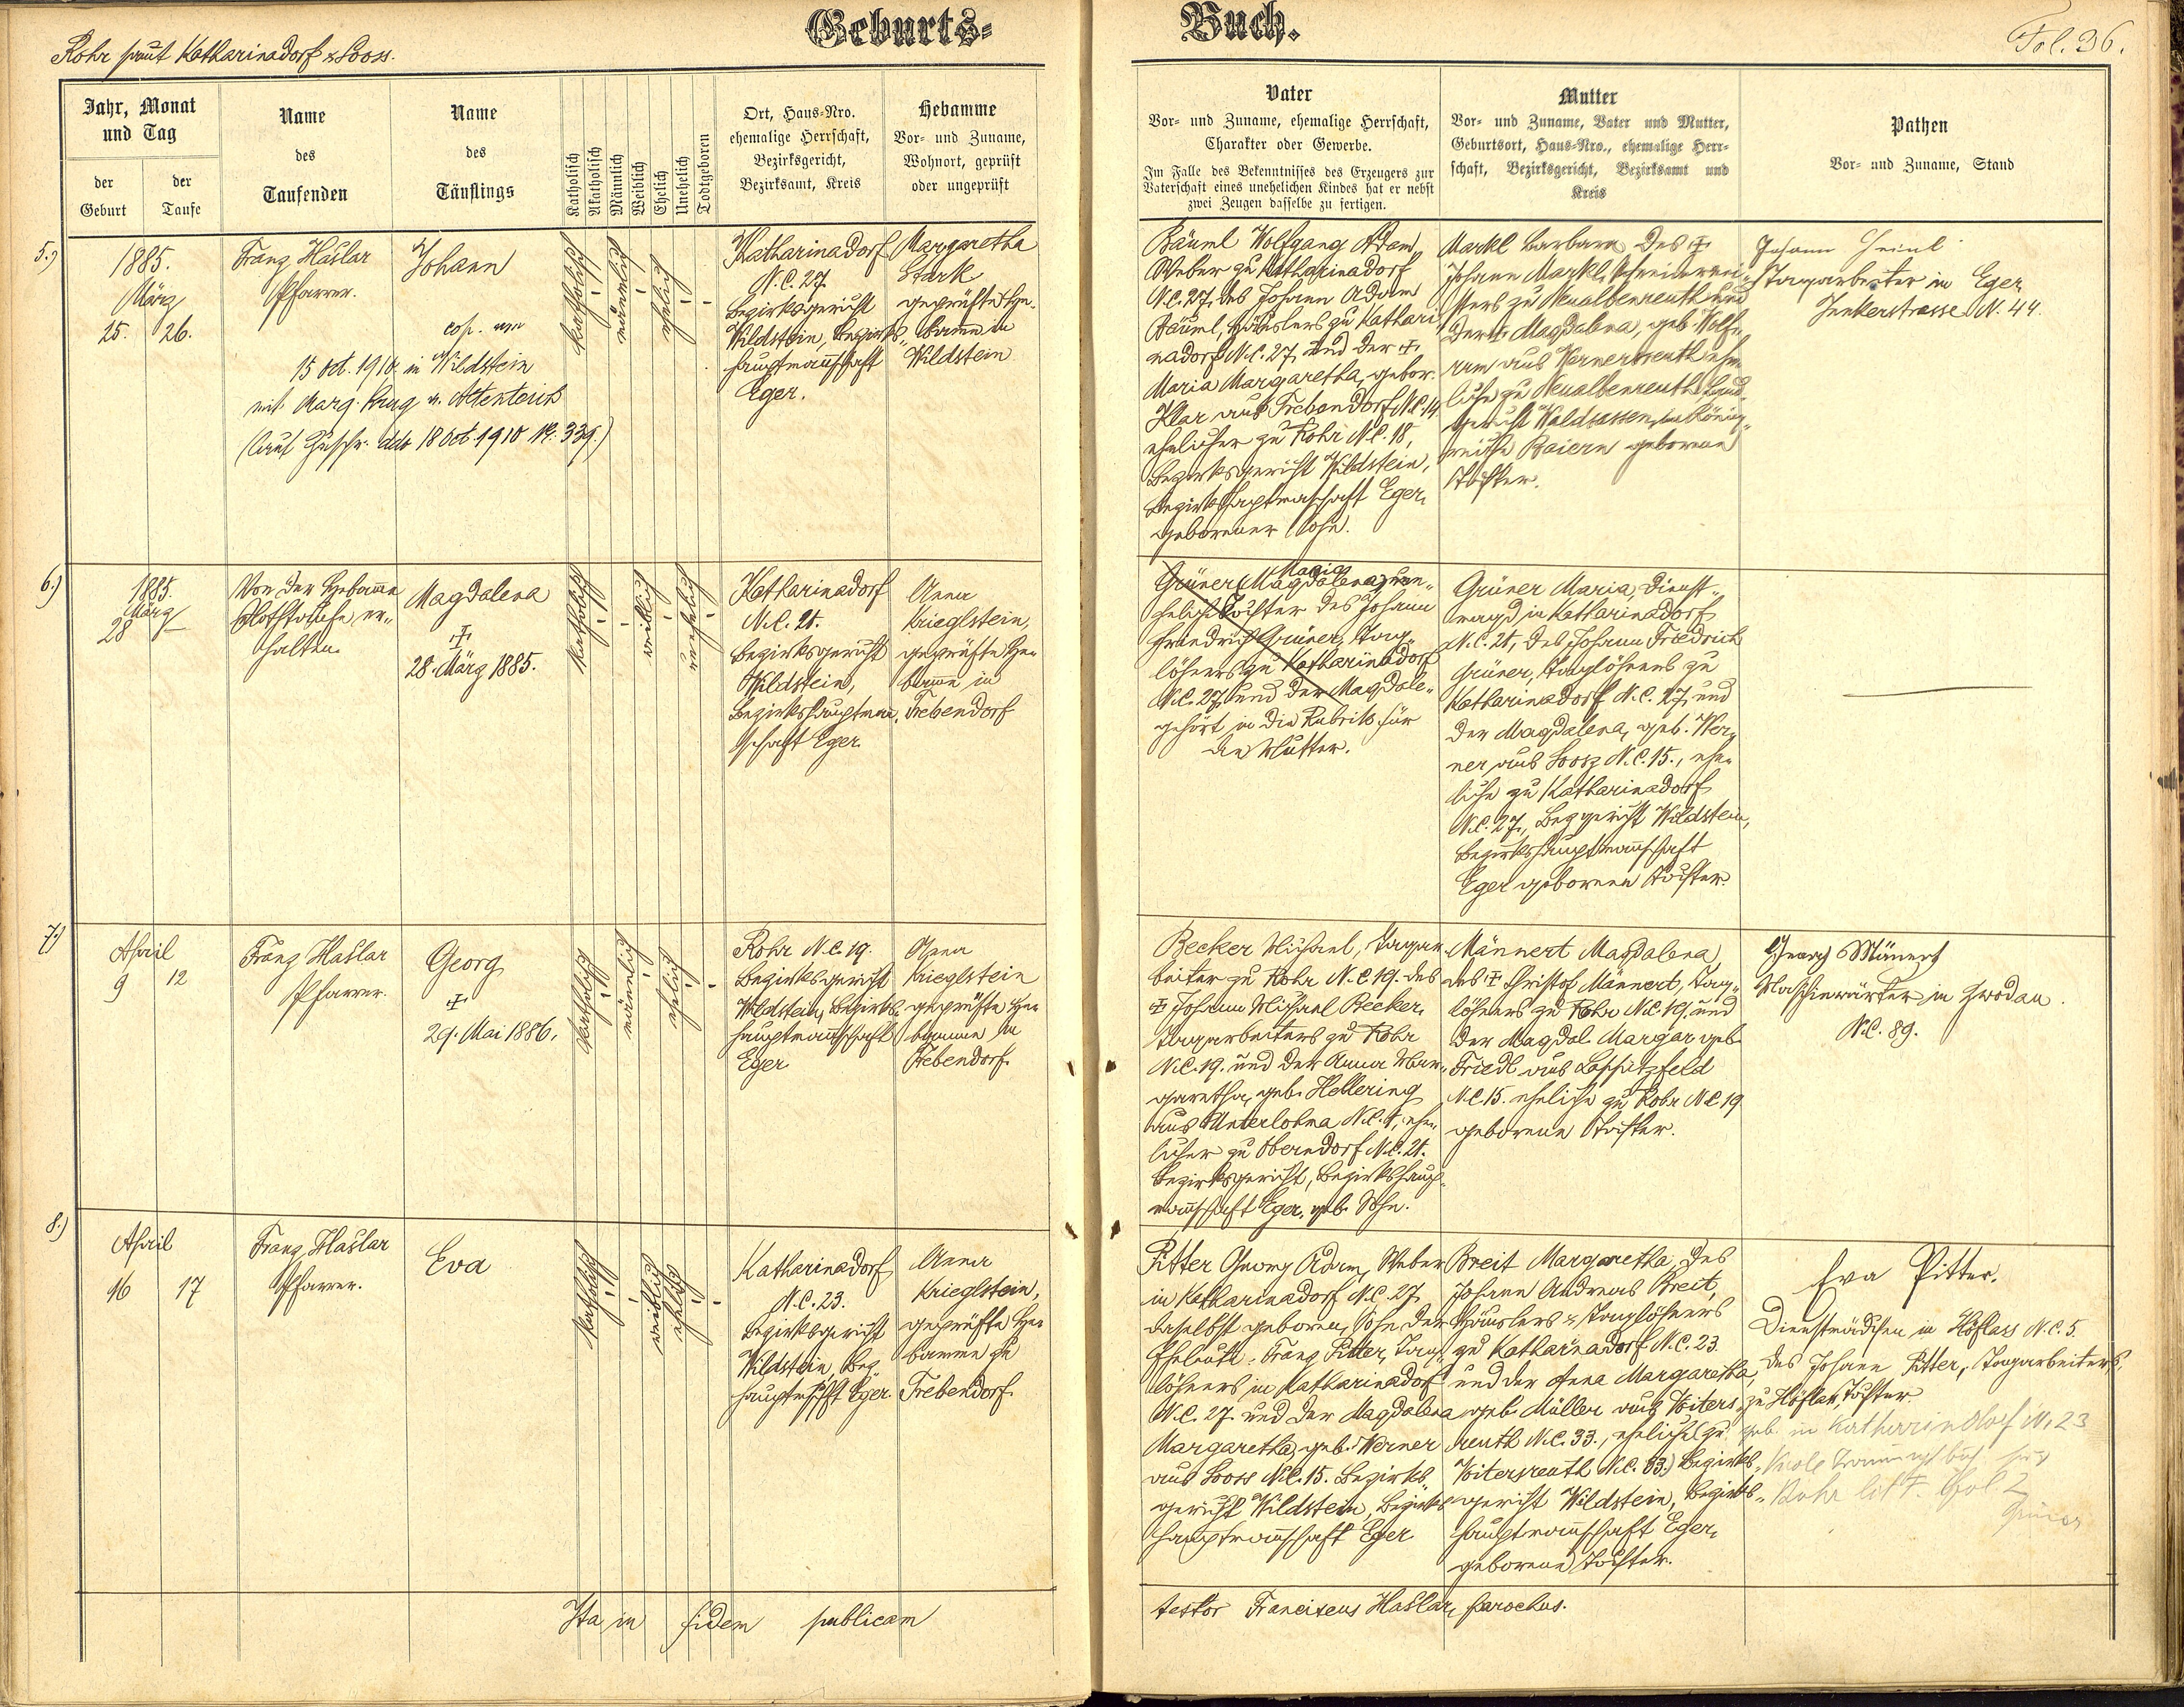 Geburts-
Buch.
Fol. 36.
Rohr samt Katharinadorf & Sooss.
Jahr, Monat
und Tag
der
Geburt
der
Taufe
Name
des
Taufenden
Name
des
Täuflings
Katholisch
Akatholisch
Männlich
Weiblich
Ehelich
Unehelich
Todtgeboren
Ort, Haus-Nro.
ehemalige Herrschaft,
Bezirksgericht,
Bezirksamt, Kreis
Hebamme
Vor- und Zuname,
Wohnort, geprüft
oder ungeprüft
Vater
Vor- und Zuname, ehemalige Herrschaft,
Charakter oder Gewerbe.
Im Falle des Bekenntnisses des Erzeugers zur
Vaterschaft eines unehelichen Kindes hat er nebst
zwei Zeugen dasselbe zu fertigen.
Mutter
Vor- und Zuname, Vater und Mutter,
Geburtsort, Haus-Nro., ehemalige Herr-
schaft, Bezirksgericht, Bezirksamt und
Kreis
Pathen
Vor- und Zuname, Stand
5.)
1885.
März
25. 26.
Franz Haßlar
Pfarrer.
Johann
cop. am
15 Oct. 1910. in Wildstein
mit Marg. Krug v. Altenteich
(laut Zuschr. ddo 18 Oct. 1910 No. 339.)
katholisch
männlich
ehelich
Katharinadorf
N.C. 27.
Bezirksgericht
Wildstein, Bezirks-
hauptmannschaft
Eger.
Margaretha
Stark
geprüfte He-
bamme in
Wildstein
Bäuml Wolfgang Adam,
Weber zu Katharinadorf
N.C. 27, des Johann Adam
Bäuml, Häuslers zu Kathari-
nadorf N.C. 27, und der ‡
Maria Margaretha, gebor.
Klar aus Trebendorf N.C. 14
ehelicher zu Rohr N.C. 18,
Bezirksgericht Wildstein,
Bezirkshauptmannschaft Eger,
geborener Sohn.
Markl Barbara, des ‡
Johann Markl, Schneidermei-
sters zu Neualbenreuth und
der ‡ Magdalena, geb. Wolf-
rum aus Wernersreuth ehe-
liche zu Neualbenreuth Land-
gericht Waldsassen, im König-
reiche Baiern geborene
Tochter.
Johann Heinl
Tagarbeiter in Eger
Jenkerstrasse N. 44.
6.)
1885.
März
28
Von der Hebamme
Nothtaufe er-
halten.
Magdalena
‡
28. März 1885.
katholisch
weiblich
unehelich
Katharinadorf
N.C. 21.
Bezirksgericht
Wildstein,
Bezirkshauptmann-
schaft Eger.
Anna
Krieglstein,
geprüfte He-
bamme in
Trebendorf
Maria
Grüner Magdalena, un-
eheliche Tochter des Johann
Friedrich Grüner, Tag-
löhners zu Katharinadorf
N.C. 27, und der Magdale-
gehört in die Rubrik für
die Mutter.
Grüner Maria, Dienst-
magd in Katharinadorf
N.C. 21, des Johann Friedrich
Grüner, Taglöhners zu
Katharinadorf N.C. 27, und
der Magdalena, geb. Wer-
ner aus Soosz N.C. 15., ehe-
liche zu Katharinadorf
N.C. 27., Bezgericht Wildstein,
Bezirkshauptmannschaft
Eger geborene Tochter.
7.)
April
9 12
Franz Haßlar
Pfarrer.
Georg
‡
29. Mai 1886.
katholisch
männlich
ehelich
Rohr N.C. 19.
Bezirksgericht
Wildstein, Bezirks-
hauptmannschaft
Eger
Anna
Krieglstein
geprüfte He-
bamme in
Trebendorf.
Becker Michael, Tagar-
beiter zu Rohr N.C. 19. des
‡ Johann Michael Becker,
Tagarbeiters zu Rohr
N.C. 19. und der Anna Mar-
garetha, geb. Hellering
aus Unterlohma N.C. 1, ehe-
licher zu Oberndorf N.C. 21.
Bezirksgericht, Bezirkshaupt-
mannschaft Eger, geb. Sohn.
Männert Magdalena,
des ‡ Christof Männert, Tag-
löhners zu Rohr N.C. 19. und
der Magdal. Margar. geb.
Friedl aus Lapitzfeld
N.C. 15. eheliche zu Rohr N.C. 19
geborene Tochter.
Georg Mänert
Maschinwärter in Zwodau.
N.C. 89.
8.)
April
16 17
Franz Haßlar
Pfarrer.
Eva
katholisch
weiblich
ehelich
Katharinadorf
N.C. 23.
Bezirksgericht
Wildstein, Bez.
hauptmschft Eger.
Anna
Krieglstein,
geprüfte He-
bamme zu
Trebendorf.
Pitter Georg Adam, Weber
in Katharinadorf N.C. 27,
daselbst geboren, Sohn der
Eheleute: Franz Pitter, Tag-
löhners in Katharinadorf
N.C. 27. und der Magdalena
Margaretha, geb. Werner
aus Sooss N.C. 15. Bezirks-
gericht Wildstein, Bezirks-
hauptmannschaft Eger
Breit Margaretha, des
Johann Andreas Breit,
Häuslers & Taglöhners
zu Katharinadorf N.C. 23.
und der Anna Margaretha,
geb. Müller aus Voiters-
reuth N.C. 33., eheliche (zu
Voitersreuth N.C. 33.) Bezirks-
gericht Wildstein, Bezirks-
hauptmannschaft Eger,
geborene Tochter.
Eva Pitter,
Dienstmädchen in Höflass N.C. 5.
des Johann Pitter, Tagarbeiters,
zu Höflas, Tochter.
geb. in Katharinadorf N. 23
Rohr litt F. Fol 2
Ita in fidem publicam
testor Franciscus Haßlar, parochus.